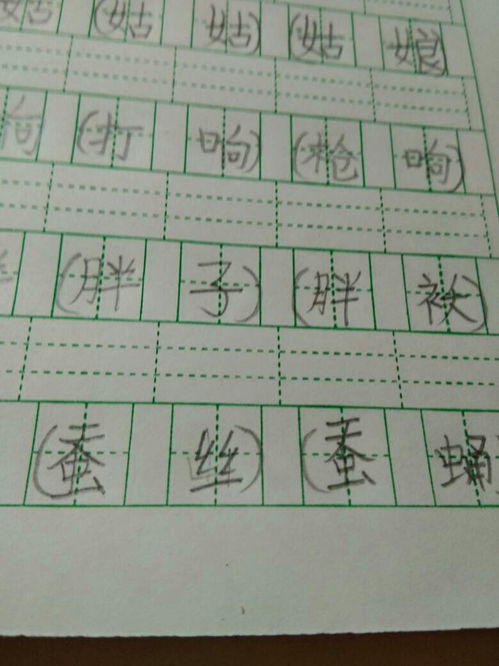 姑 (姑 姑) (姑 娘
响 (打 响) (枪 响)
(胖 子) (胖 袄)
(蚕 丝) (蚕 蛹